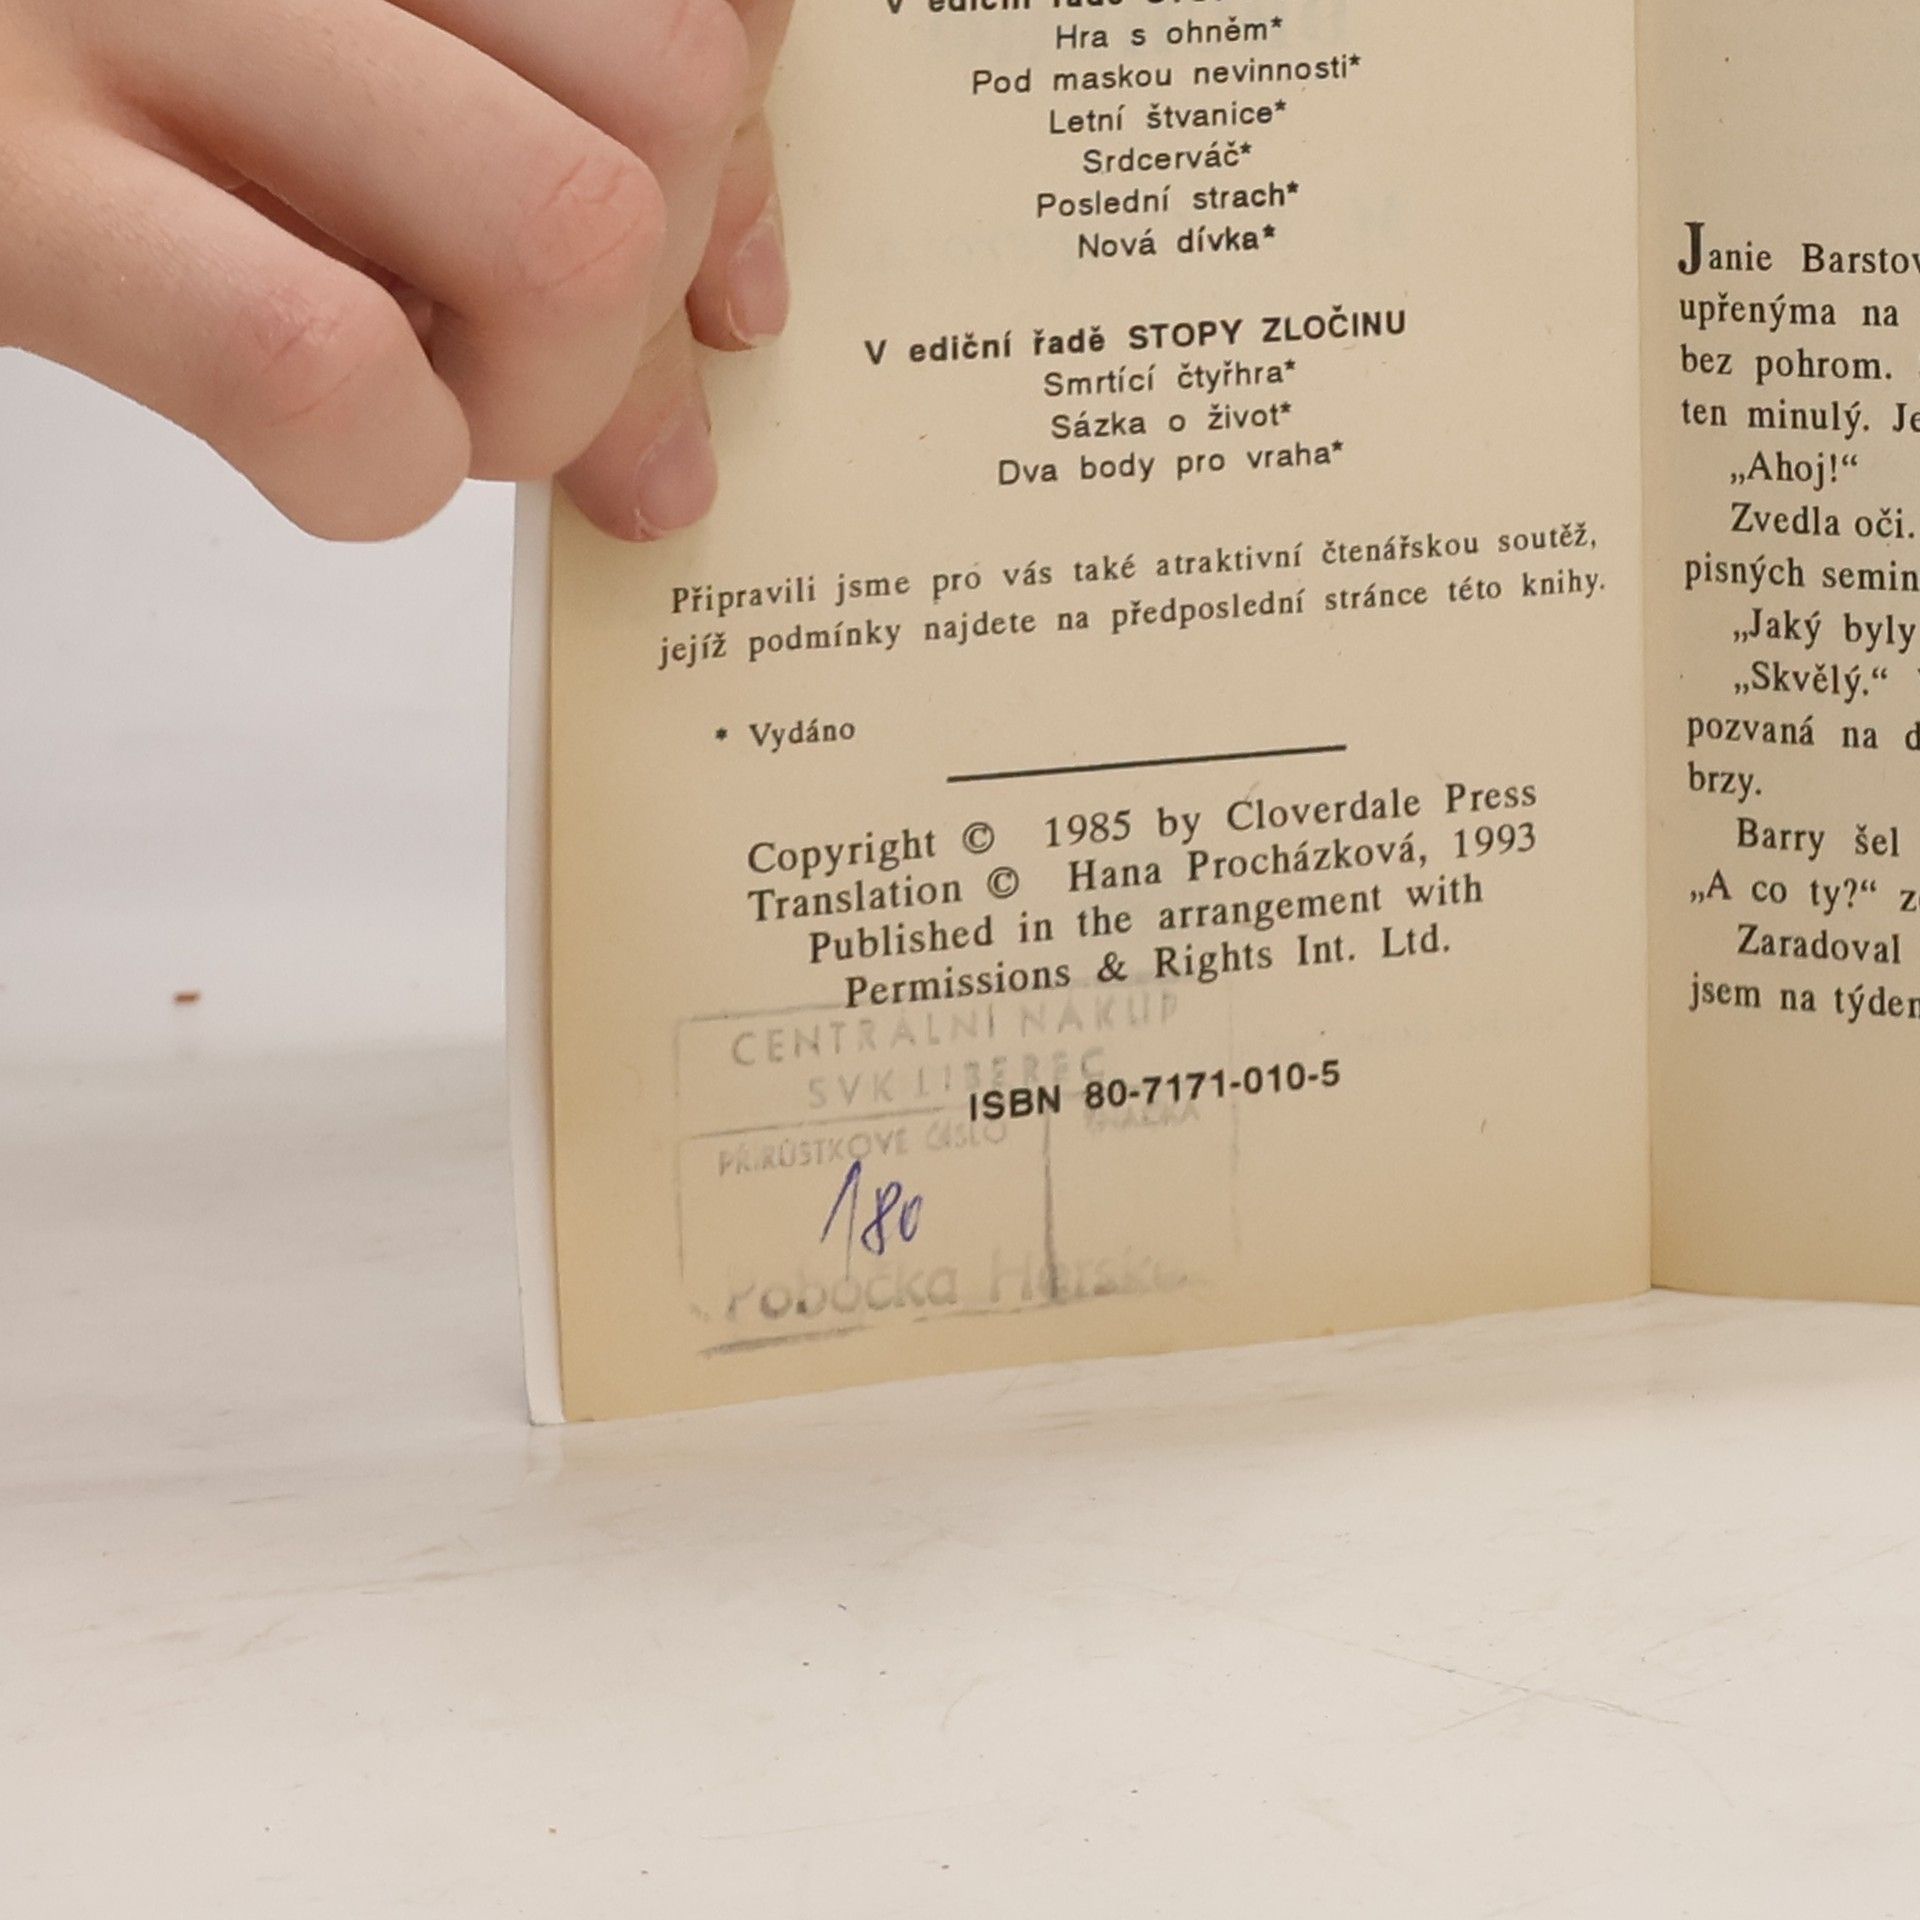 V ediční řadě
Hra s ohněm*
Pod maskou nevinnosti*
Letní štvanice*
Srdcerváč*
Poslední strach*
Nová dívka*
V ediční řadě STOPY ZLOČINU
Smrtící čtyřhra*
Sázka o život*
Dva body pro vraha*
Připravili jsme pro vás také atraktivní čtenářskou soutěž,
jejíž podmínky najdete na předposlední stránce této knihy.
* Vydáno
Copyright © 1985 by Cloverdale Press
Translation © Hana Procházková, 1993
Published in the arrangement with
Permissions & Rights Int. Ltd.
CENTRÁLNÍ NÁKUP
SVK LIBEREC
ISBN 80-7171-010-5
PŘÍRŮSTKOVÉ ČÍSLO
180
Pobočka
Janie
upřenýma na
bez pohrom.
ten minulý.
„Ahoj!“
Zvedla oči.
pisných
„Jaký byly
„Skvělý.“
pozvaná na
brzy.
Barry šel
„A co ty?“
Zaradoval
jsem na